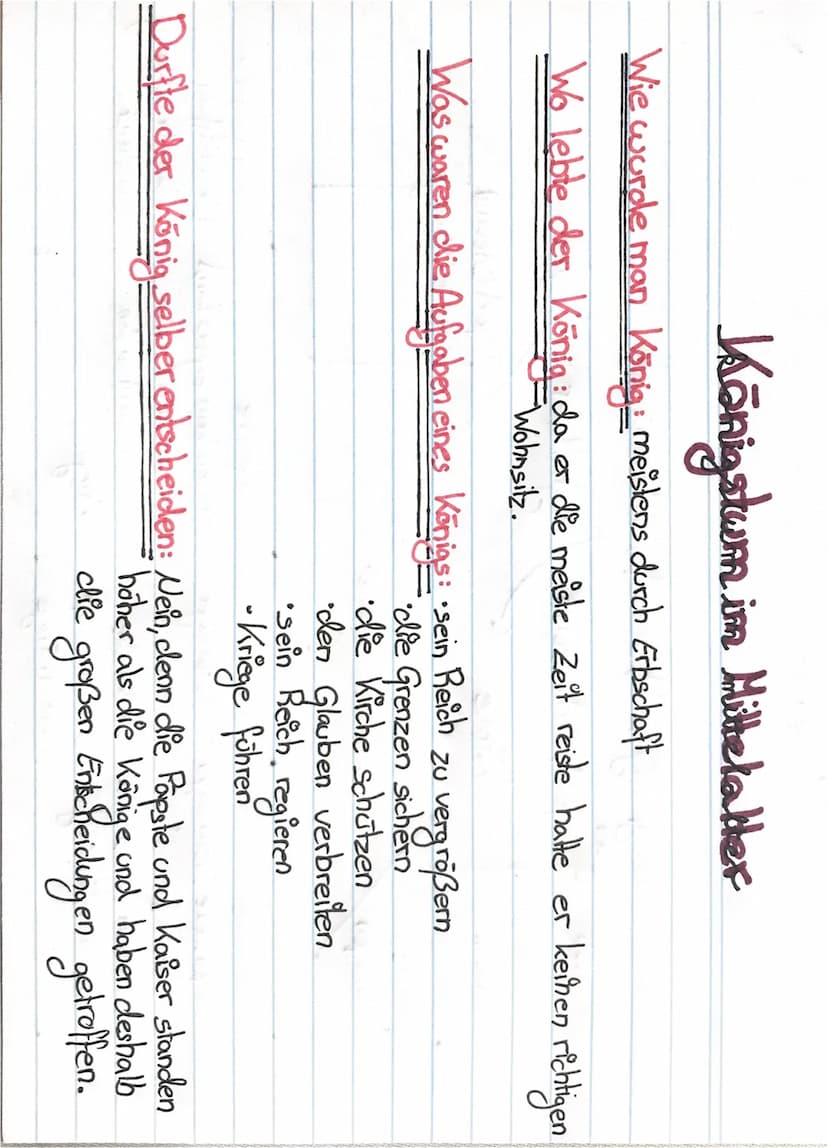 Königstum im Mittelalter
Wie wurde man König: meistens durch Erbschaft
Wo lebte der König: da er die meiste Zeit reiste hatte er keinen richtigen
Wohnsitz.
Was waren die Aufgaben eines Königs: • sein Reich zu vergrößern
• die Grenzen sichern
• die Kirche schützen
• den Glauben verbreiten
• sein Reich regieren
• Kriege führen
Durfte der König selber entscheiden: Nein, denn die Päpste und Kaiser standen
höher als die Könige und haben deshalb
die großen Entscheidungen getroffen.